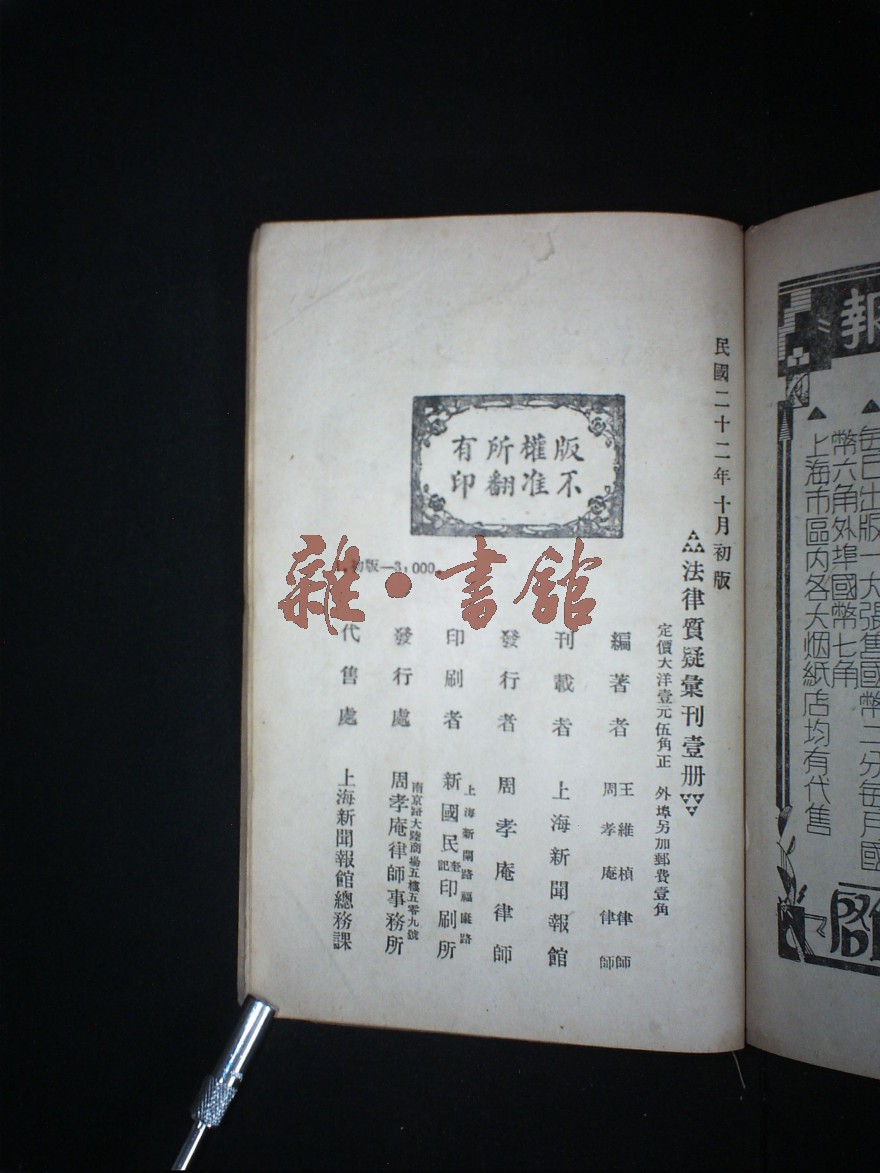 民國二十二年十月初版
法律質疑彙刊壹册
定價大洋壹元伍角正　外埠另加郵費壹角
版權所有
不准翻印
初版—3,000.
編著者　王維楨律師
周孝庵律師
刊載者　上海新聞報館
發行者　周孝庵律師
印刷者　上海新閘路福康路
新國民乾記印刷所
發行處　南京路大陸商場五樓五零九號
周孝庵律師事務所
代售處　上海新聞報館總務課
雜·書館
報
每日出版一大張售國幣二分每月國
幣六角外埠國幣七角
上海市區内各大烟紙店均有代售
啟